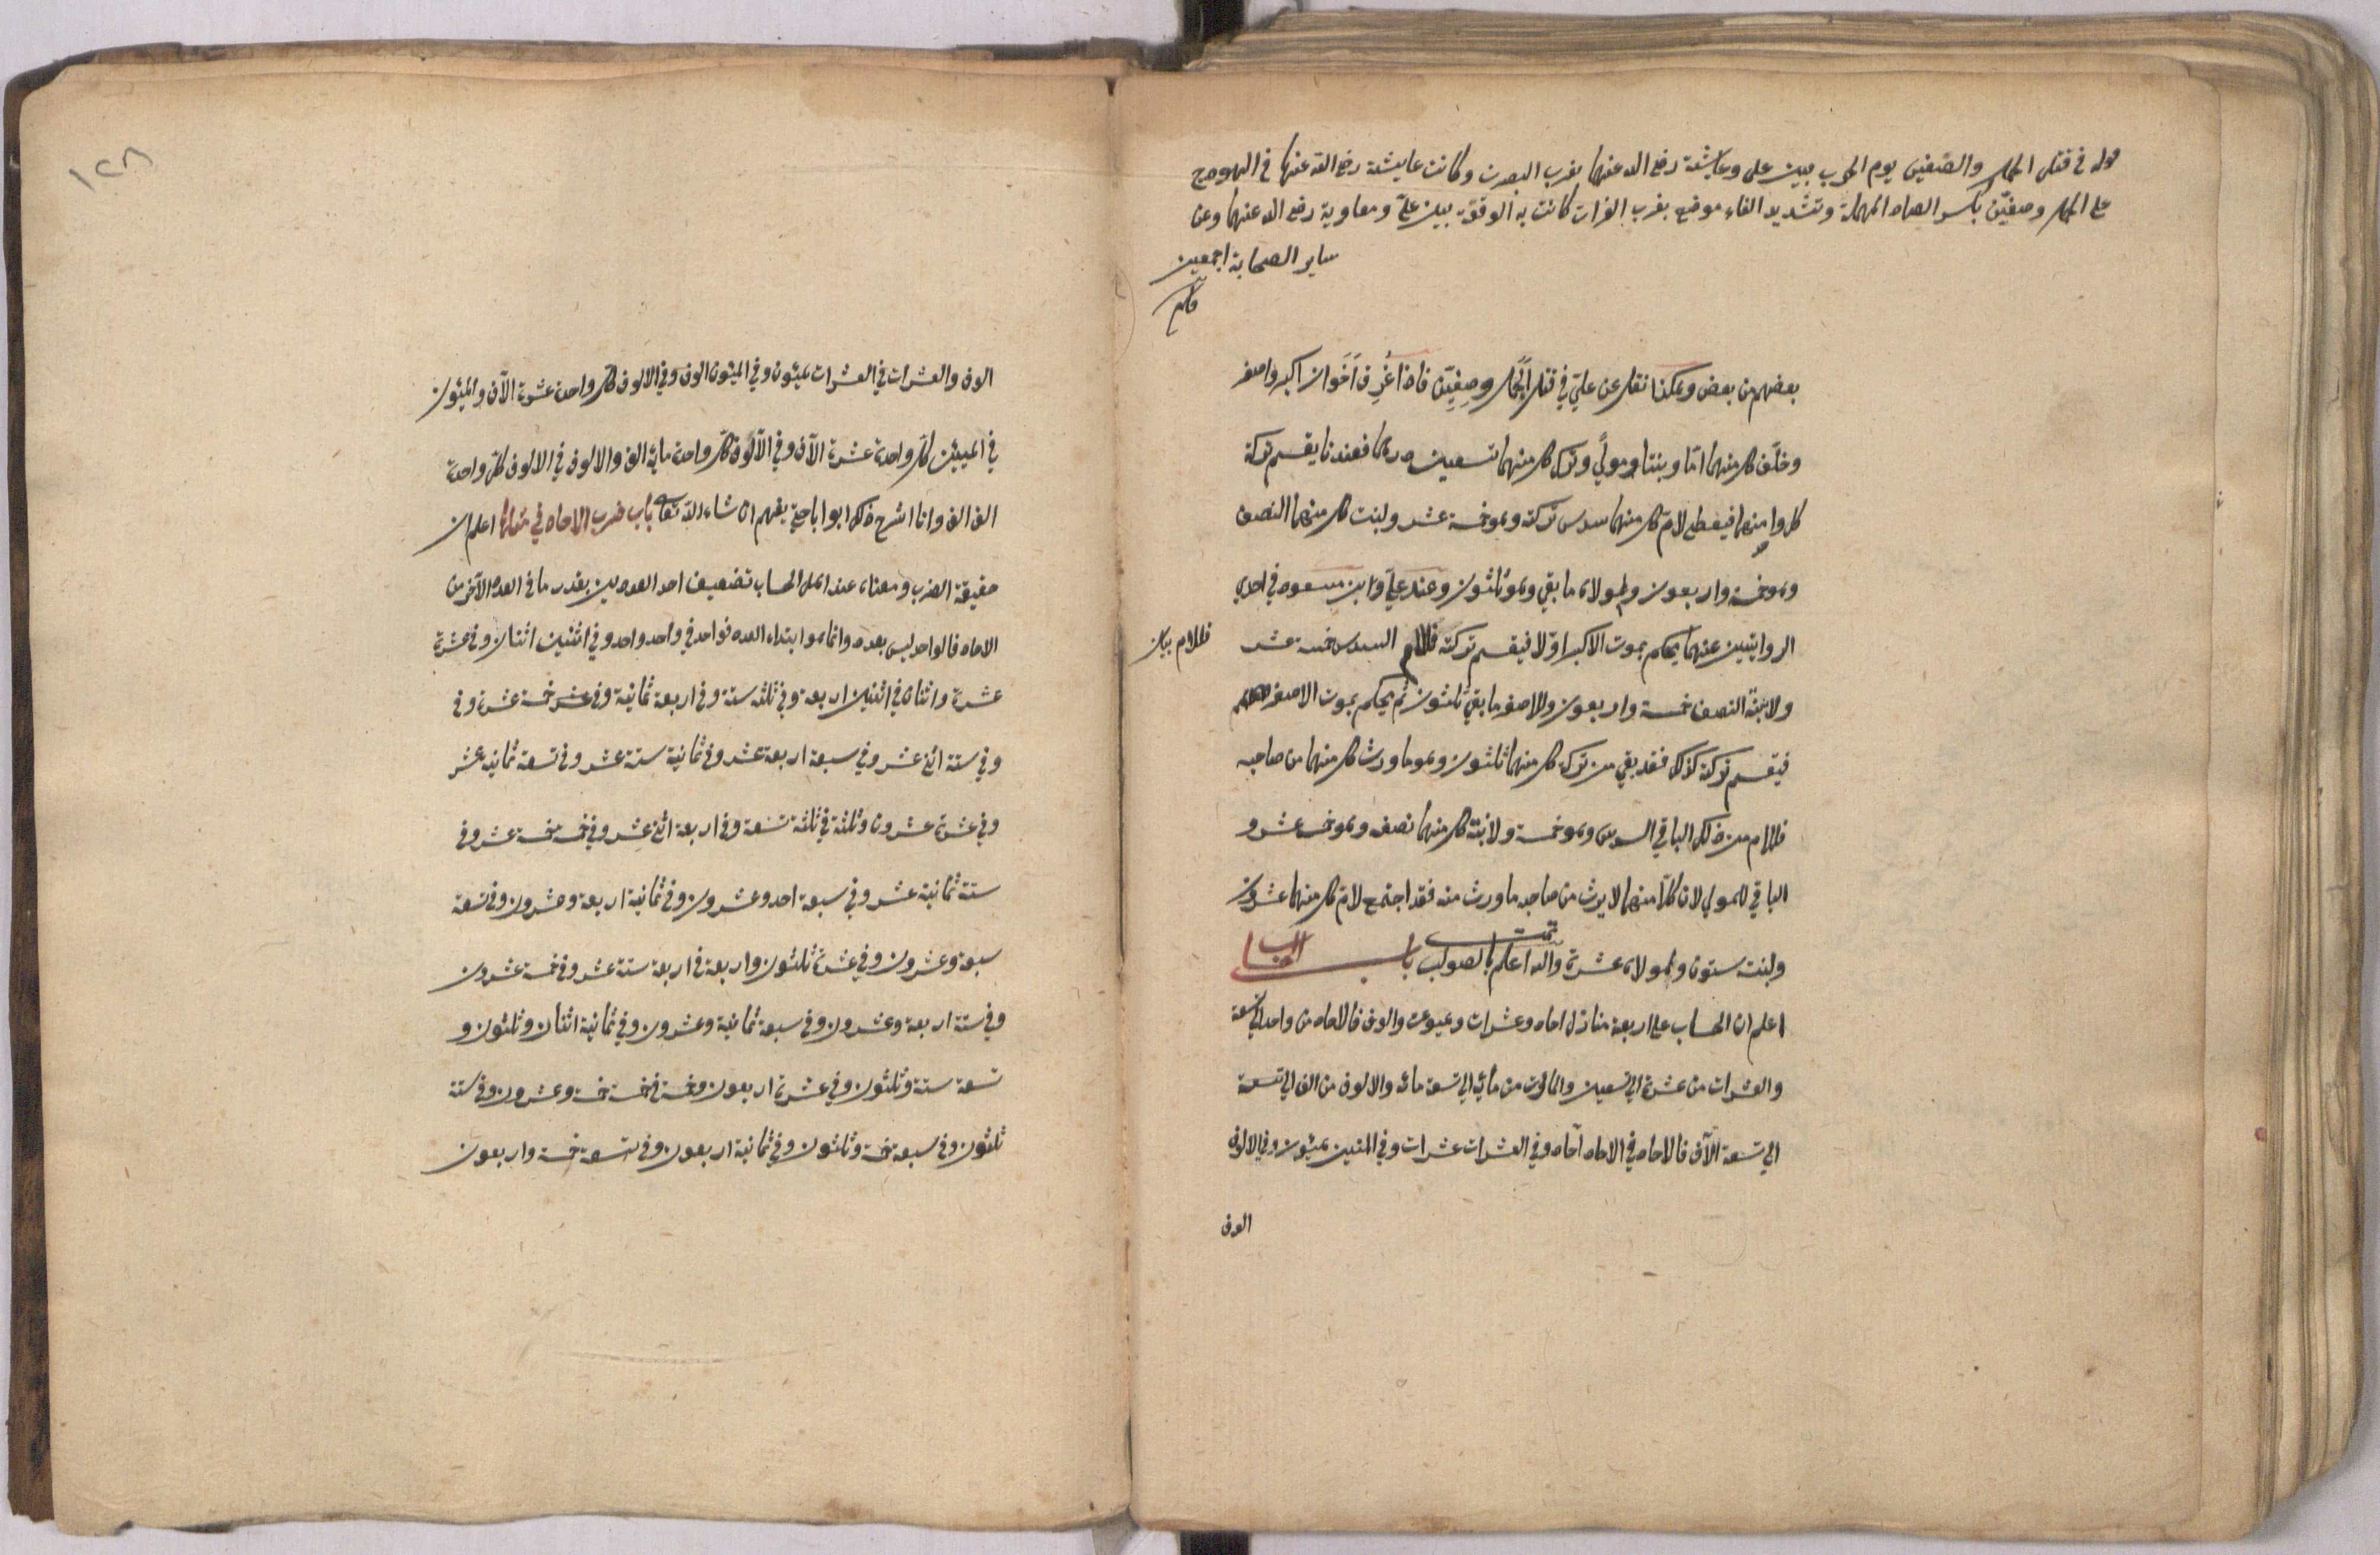 قوله في قتلى الجمل والصفين يوم الحرب بين على وعايشة رضي الله عنهما بقرب البصرة وكانت عايشة رضي الله عنها في الهودج
على الجمل وصفين بكسر الصاد المهملة وتشديد الفاء موضع بقرب الفرات كانت به الوقعة بين علي ومعاوية رضي الله عنهما وعن
ساير الصحابة اجمعين
بعضهم من بعض وهكذا نقل عن علي في قتلى الجمل وصفين فاذا غرق اخوان اكبر واصغر
وخلف كل منهما اما وبنتا ومولى وترك كل منهما تسعين درهما فعندنا يقسم تركة
كل وا منهما فيعطى لام كل منهما سدس تركته وهو خمسة عشر ولبنت كل منهما النصف
وهو خمسة واربعون ولمولاه ما بقي وهو ثلثون وعند علي وابن مسعود في احدى
الروايتين عنهما يحكم بموت الاكبر اولا فيقسم تركته فللام السدس خمسة عشر
فللام بيان
ولابنته النصف خمسة واربعون وللاصغر ما بقي ثلثون ثم يحكم بموت الاصغر
فيقسم تركته كذلك فقد بقي من تركة كل منهما ثلثون وهو ما ورث كل منهما من صاحبه
فللام من ذلك الباقي السدس وهو خمسة ولابنة كل منهما نصف وهو خمسة عشر و
الباقي للمولى لان كلا منهما لا يرث من صاحبه ما ورث منه فقد اجتمع لام كل منهما عشرون
ولبنت ستون ولمولاه عشرة والله اعلم بالصواب تمت باب الحساب
اعلم ان الحساب على اربعة منازل احاد وعشرات ومئوت والوف فالاحاد من واحد الى تسعة
والعشرات من عشرة الى تسعين والمائت من مائة الى تسعة مائة والالوف من الف الى تسعة
الى تسعة آلاف فالاحاد في الاحاد آحاد وفي العشرات عشرات وفي المئين مئون وفي الالوف
الوف
١٢٨
الوف والعشرات في العشرات مئون وفي المئون الوف وفي الالوف كل واحدة عشرة الآف والمئون
في المئين كل واحدة عشرة الآف وفي الآلوف كل واحدة ماية الف والالوف في الالوف كل واحدة
الف الف وانا اشرح ذلك ابوابا حتى يفهم ان شاء الله تعالى باب ضرب الاحاد في مثلها اعلم ان
حقيقة الضرب ومعناه عند اهل الحساب تضعيف احد العددين بقدر ما في العدد الآخر من
الاحاد فالواحد ليس بعدد وانما هو ابتداء العدد فواحد في واحد واحد وفي اثنين اثنان وفي عشرة
عشرة واثنان في اثنين اربعة وفي ثلثه ستة وفي اربعة ثمانية وفي خمسة عشرة وفي
وفي ستة اثنى عشر وفي سبعة اربعة عشر وفي ثمانية ستة عشر وفي تسعة ثمانية عشر
وفي عشرة عشرون وثلثة في ثلثة تسعة وفي اربعة اثنى عشر وفي خمسة خمسة عشر وفي
ستة ثمانية عشر وفي سبعة احد وعشرون وفي ثمانية اربعة وعشرون وفي تسعة
سبعة وعشرون وفي عشرة ثلثون واربعة في اربعة ستة عشر وفي خمسة عشرون
وفي ستة اربعة وعشرون وفي سبعة ثمانية وعشرون وفي ثمانية اثنان وثلثون و
تسعة ستة وثلثون وفي عشرة اربعون وخمسة في خمسة خمسة وعشرون وفي ستة
ثلثون وفي سبعة خمسة وثلثون وفي ثمانية اربعون وفي تسعة خمسة واربعون